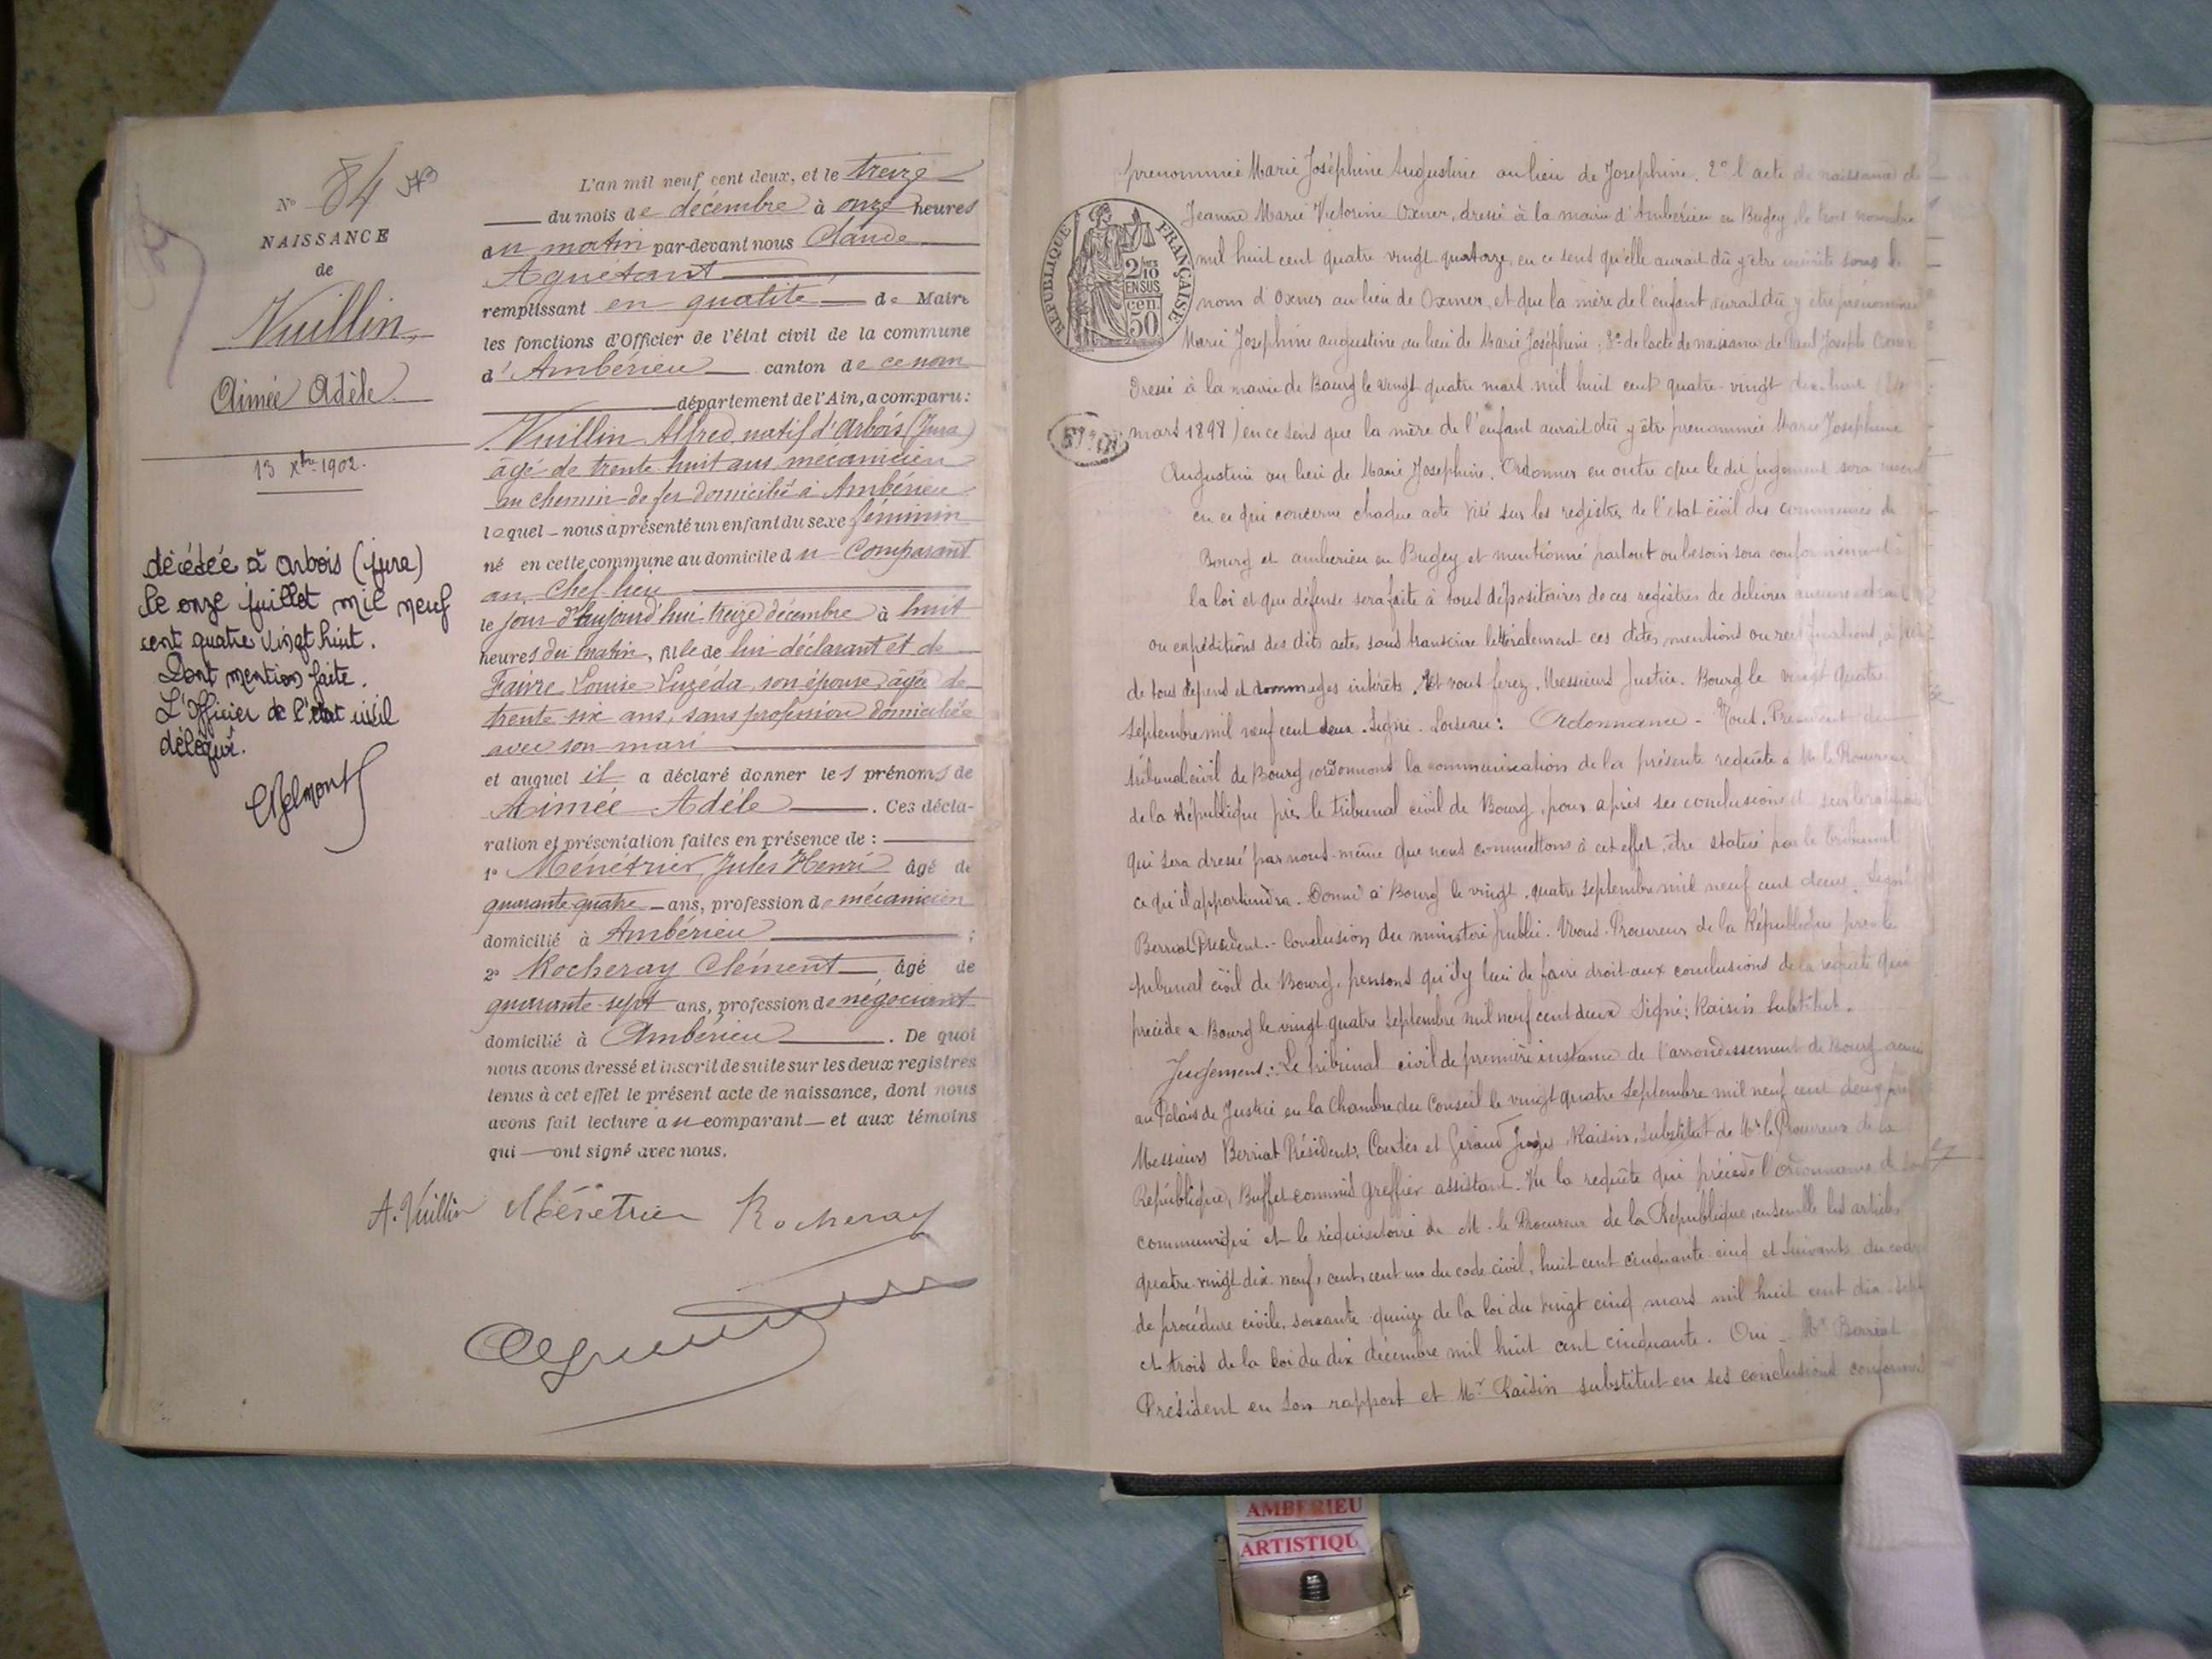 N° 84
NAISSANCE
de
Vuillin
Aimée Adèle
13 Xbre 1902.
décédée à Arbois (jura)
le onze juillet mil neuf
cent quatre vingt huit.
Dont mention faite.
L'Officier de l'état civil
délégué.
L'an mil neuf cent deux, et le treize
du mois de décembre à onze heures
du matin par-devant nous Claude
Aguétant
remplissant en qualité de Maire
les fonctions d'Officier de l'état civil de la commune
d'Ambérieu canton de ce nom
département de l'Ain, a comparu :
Vuillin Alfred natif d'Arbois (Jura)
âgé de trente huit ans mécanicien
au chemin de fer domicilié à Ambérieu
lequel nous a présenté un enfant du sexe féminin
né en cette commune au domicile du Comparant
au Chef lieu
le jour d'aujourd'hui treize décembre à huit
heures du matin, fille de lui déclarant et de
Faivre Louise Luzéda son épouse âgée de
trente six ans, sans profession domiciliée
avec son mari
et auquel il a déclaré donner les prénoms de
Aimée Adèle. Ces décla-
ration et présentation faites en présence de :
1° Ménétrier Jules Henri âgé de
quarante quatre ans, profession de mécanicien
domicilié à Ambérieu ;
2° Rocheray Clément âgé de
quarante-sept ans, profession de négociant
domicilié à Ambérieu. De quoi
nous avons dressé et inscrit de suite sur les deux registres
tenus à cet effet le présent acte de naissance, dont nous
avons fait lecture au comparant et aux témoins
qui ont signé avec nous.
A. Vuillin Ménétrier Rocheray
RÉPUBLIQUE FRANÇAISE
2/10 EN SUS
cen 50
prenommée Marie Joséphine Augustine au lieu de Josephine. 2° l'acte de naissance de
Jeanne Marie Victorine Oxner, dressé à la mairie d'Ambérieu en Bugey, le trois novembre
mil huit cent quatre vingt quatorze, en ce sens qu'elle aurait dû y être inscrite sous le
nom d'Oxner au lieu de Oxmer, et que la mère de l'enfant aurait dû y être prénommée
Marie Josephine augustine au lieu de Marie Joséphine ; 3° de l'acte de naissance de Paul Joseph
Dressé à la mairie de Bourg le vingt quatre mars mil huit cent quatre-vingt dix huit
mars 1898) en ce sens que la mère de l'enfant aurait dû y être prenommée Marie Josephine
Augustine au lieu de Marie Josephine. Ordonner en outre que le dit jugement sera
en ce qui concerne chaque acte visé sur les registres de l'etat civil des communes de
Bourg et amberieu en Bugey et mentionné partout ou besoin sera conformément à
la loi et que défense sera faite à tous dépositaires de ces registres de delivrer aucun extrait
ou expéditions des dits actes sans transcrire littéralement ces dites mentions ou rectifications, à peine
de tous dépens et dommages intérêts. Et vous ferez, Messieurs Justice. Bourg le vingt quatre
septembre mil neuf cent deux. Signé. Loiseau : Ordonnance - Nous. Président du
tribunal civil de Bourg, ordonnons la communication de la présente requête à M. le Procureur
de la République près le tribunal civil de Bourg, pour après ses conclusions et sur le rapport
qui sera dressé par nous-même que nous commettons à cet effet, être statué par le tribunal
ce qu'il appartiendra. Donné à Bourg le vingt quatre septembre mil neuf cent deux. Signé
Berriat Président. - Conclusion du ministère public. Nous Procureur de la République près le
tribunal civil de Bourg, pensons qu'il y lieu de faire droit aux conclusions de la requête qui
précède a Bourg le vingt quatre septembre mil neuf cent deux Signé : Raisin substitut.
Jugement : Le tribunal civil de première instance de l'arrondissement de Bourg
au Palais de Justice en la Chambre du Conseil le vingt quatre septembre mil neuf cent deux
Messieurs Berriat Président, Cortès et Giraud Juges, Raisin, substitut de Mr le Procureur de la
République, Buffet commis greffier assistant. Vu la requête qui précède l'ordonnance de
communiqué et le réquisitoire de M. le Procureur de la République, ensemble les articles
quatre vingt dix neuf, cent, cent un du code civil, huit cent cinquante cinq et suivants du code
de procédure civile, soixante quinze de la loi du vingt cinq mars mil huit cent dix sept
et trois de la loi du dix décembre mil huit cent cinquante. Oui Mr Berriat
Président en son rapport et Mr Raisin substitut en ses conclusions conformes
AMBERIEU
ARTISTIQU